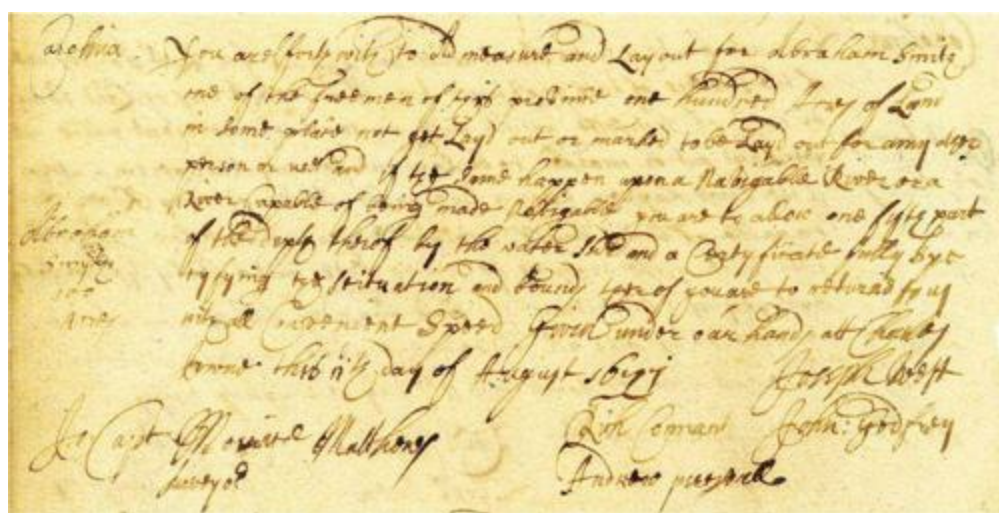 Carolina You are forthwith to admeasure and Lay out for Abraham Smith
one of the freemen of this province one hundred Acres of Land
in some place not yet Layd out or marked to be Layd out for any other
person or use and if the same happen upon a Navigable River or a
River capable of being made Navigable you are to allow one fifth part
Abraham
of the depth therof by the water side and a Certyficate fully spe
Smyth
cyfying the scituation and bounds therof you are to returne to us
100
Acres
with all Convenient Speed Given under our hands att Charles
towne this 11th day of August 1677
Joseph West
To Capt Maurice Mathews
Surveyor
Rich Conant John: Godfrey
Andrew percivall